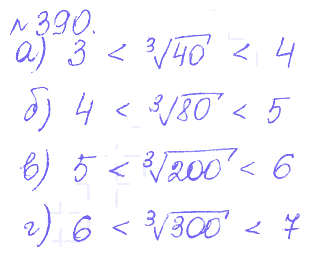 №390.
а) 3 < ∛40 < 4
б) 4 < ∛80 < 5
в) 5 < ∛200 < 6
г) 6 < ∛300 < 7